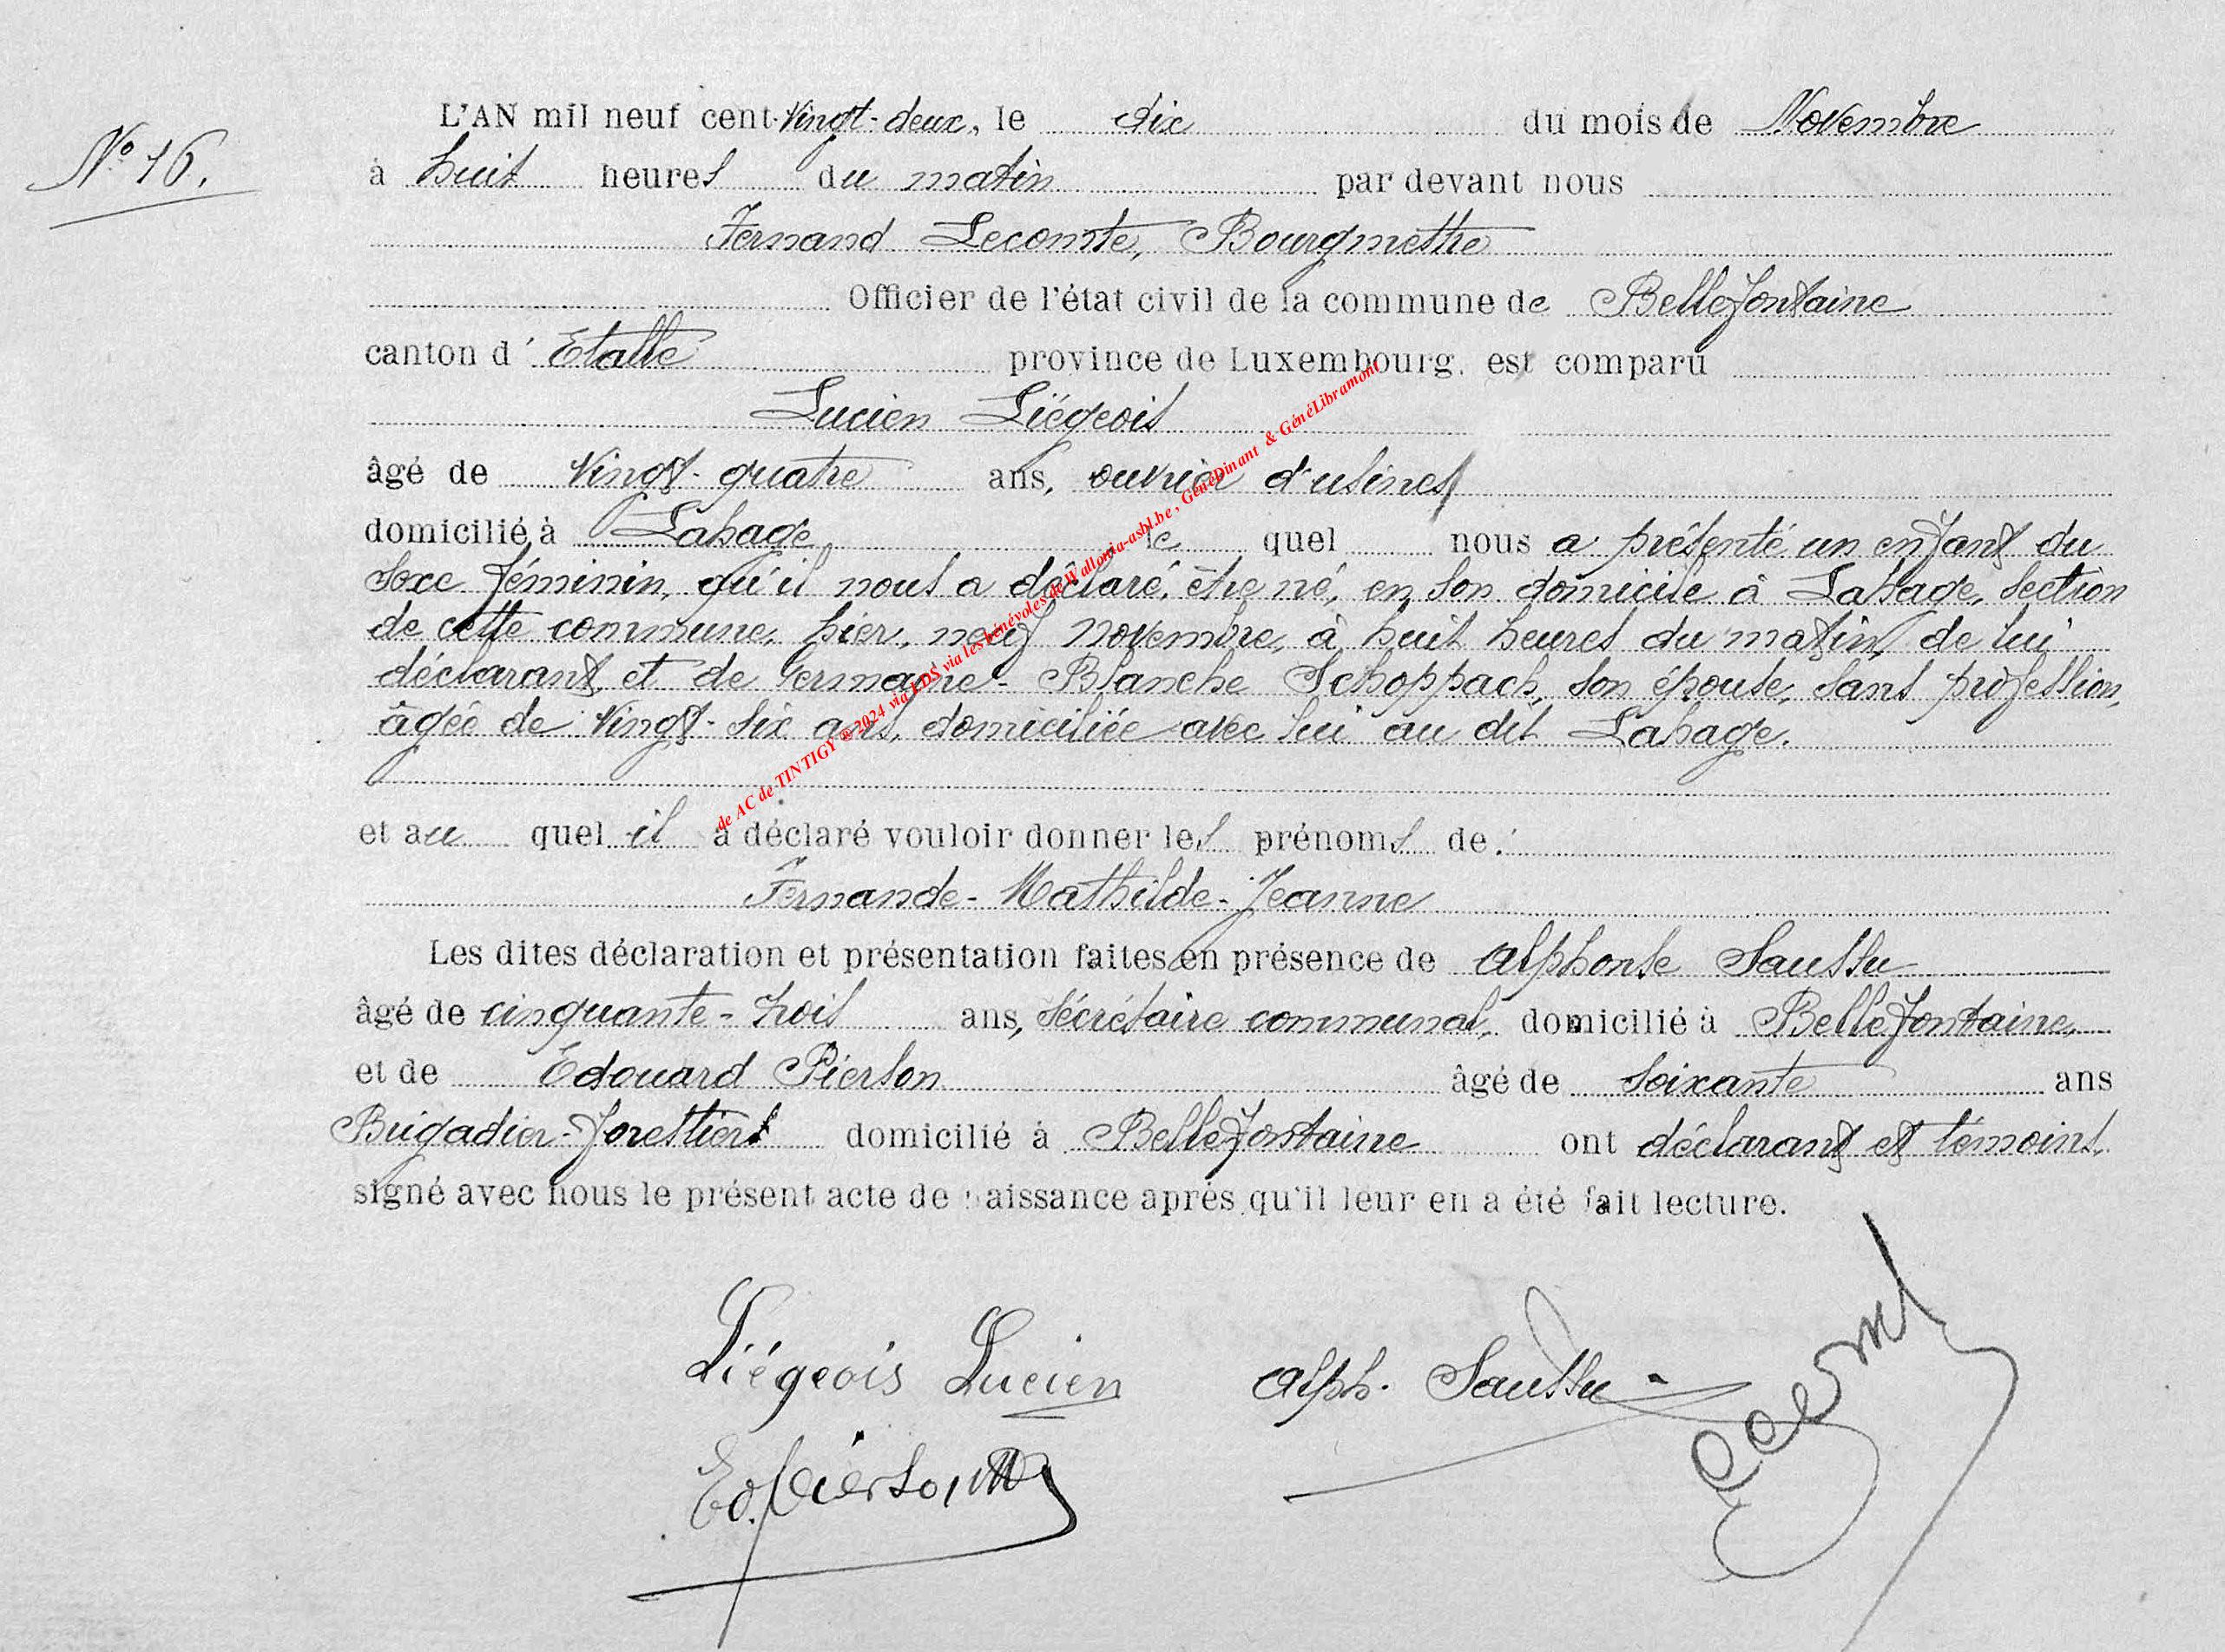 N° 16.
L'AN mil neuf cent Vingt-deux, le dix du mois de Novembre
à huit heures du matin par devant nous
Fernand Lecomte, Bourgmettre
Officier de l'état civil de la commune de Bellefontaine
canton d'Etalle province de Luxembourg, est comparu
Lucien Liégeois
âgé de Vingt-quatre ans, ouvrier d'usines
domicilié à Lahage, le quel nous a présenté un enfant du
sexe féminin, qu'il nous a déclaré, être né, en son domicile à Lahage, section
de cette commune, hier, neuf novembre, à huit heures du matin, de lui
déclarant, et de Germaine-Blanche Schoppach, son épouse, sans profession,
âgée de Vingt-six ans, domiciliée avec lui au dit Lahage.
et au quel il a déclaré vouloir donner les prénoms de :
Fernande-Mathilde-Jeanne
Les dites déclaration et présentation faites en présence de Alphonse Saussu
âgé de cinquante-trois ans, secrétaire communal, domicilié à Bellefontaine,
et de Edouard Pierson âgé de soixante ans
Brigadier-forestier domicilié à Bellefontaine ont déclarant et témoins,
signé avec nous le présent acte de naissance après qu'il leur en a été fait lecture.
Liégeois Lucien
Alph. Saussu
Ed. Pierson
de AC de TINTIGY ® 2024 via LDS via les bénévoles de Wallonia-asbl.be , GénéDinant & GénéLibramont